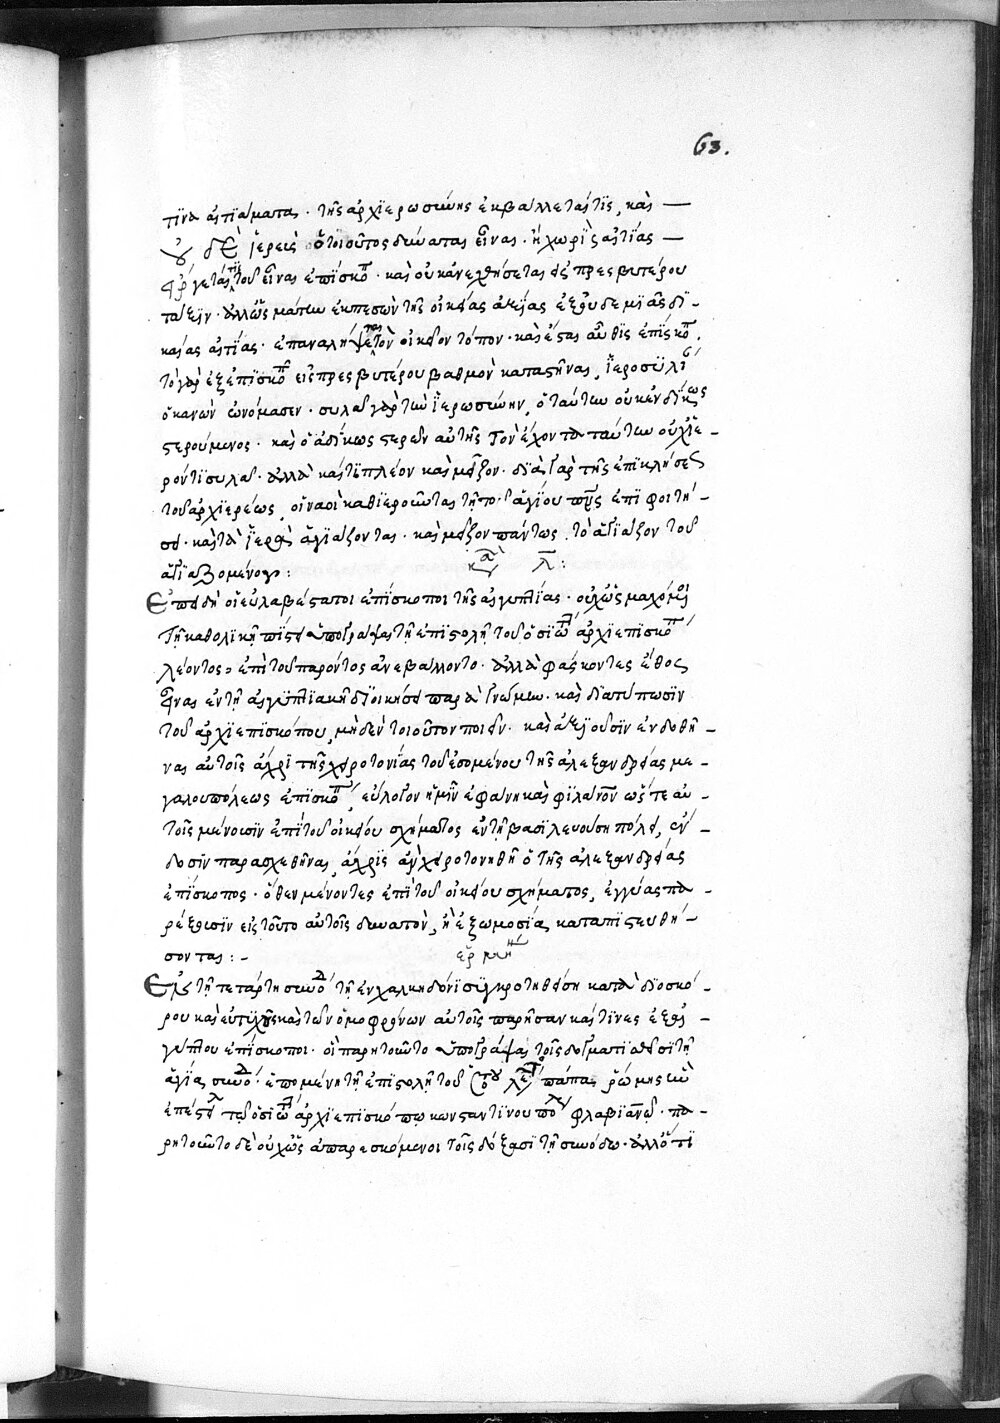 63.
τινα αιτιάματα· τῆς ἀρχιερωσύνης ἐκβάλλεται τίς, καὶ —
οὐδὲ ἱερεὺς ὁ τοιοῦτος δύναται εἶναι· ἢ χωρὶς αἰτίας —
εἴργεται τῆς τοῦ εἶναι ἐπίσκοπ· καὶ οὐκ ἀνελθήσεται εἰς πρεσβυτέρου
τάξιν· ἀλλ' ὡς μάτην ἐκπεσὼν τῆς οἰκείας ἀξίας ἐξ οὐδεμιᾶς δι-
καίας αἰτίας· ἐπαναλήψεται πάλιν τὸν οἰκεῖον τόπον· καὶ ἔσται αὖθις ἐπίσκοπ·
τὸ γὰρ ἐξ ἐπισκόπ εἰς πρεσβυτέρου βαθμὸν καταβῆναι, ἱεροσυλί
ὁ κανὼν ὠνόμασεν· συλᾶ γὰρ τὴν ἱερωσύνην, ὁ ταύτην οὐκ ἐνδίκως
στερούμενος· καὶ ὁ ἀδίκως στερῶν αὐτῆς τὸν ἔχοντα ταύτην οὐχ ἱε-
ρόν τι συλᾶ· ἀλλὰ καί τι πλέον καὶ μεῖζον· διὰ γὰρ τῆς ἐπικλήσεως
τοῦ ἀρχιερέως, οἱ ναοὶ καθιεροῦνται τῇ τοῦ ἁγίου πνς ἐπιφοιτή-
σει· καὶ τὰ ἱερὰ ἁγιάζονται· καὶ μεῖζον πάντως, τὸ ἁγιάζον τοῦ
ἁγιαζομένου:
κα λ:
Ἐπειδὴ οἱ εὐλαβέστατοι ἐπίσκοποι τῆς αἰγύπτίας· οὐχ ὡς μαχόμενοι
τῇ καθολικῇ πίστει ὑπογράψαι τῇ ἐπιστολῇ τοῦ ὁσιωτ ἀρχιεπισκόπ
λέοντος, ἐπὶ τοῦ παρόντος ἀνεβάλλοντο· ἀλλὰ φάσκοντες ἔθος
εἶναι ἐν τῇ αἰγυπτιακῇ διοικήσει παρὰ γνώμην· καὶ διατύπωσιν
τοῦ ἀρχιεπισκόπου, μηδὲν τοιοῦτον ποιεῖν· καὶ ἀξιοῦσιν ἐνδοθῆ-
ναι αὐτοῖς ἄχρι τῆς χειροτονίας τοῦ ἐσομένου τῆς ἀλεξανδρείας με-
γαλουπόλεως ἐπισκόπ, εὔλογον ἡμῖν ἐφάνη καὶ φιλανον ὥστε αὐ-
τοῖς μένουσιν ἐπὶ τοῦ οἰκείου σχήματος ἐν τῇ βασιλευούσῃ πόλει, ἔν-
δοσιν παρασχεθῆναι, ἄχρις ἂν χειροτονηθῇ ὁ τῆς ἀλεξανδρείας
ἐπίσκοπος· ὅθεν μένοντες ἐπὶ τοῦ οἰκείου σχήματος, ἐγγύας πα-
ρέξουσιν εἰ τοῦτο αὐτοῖς δυνατὸν, ἢ ἐξωμοσίᾳ καταπιστευθή-
σονται: -
ἑρμη
Ἐν τῇ τετάρτῃ συνό τῇ ἐν χαλκηδόνι συγκροτηθείσῃ κατὰ διοσκό-
ρου καὶ εὐτυχοῦς καὶ τῶν ὁμοφρόνων αὐτοῖς παρῆσαν καί τινες ἐξ αἰ-
γύπτου ἐπίσκοποι· οἳ παρῃτοῦντο ὑπογράψαι τοῖς δογματισθεῖσι τῇ
ἁγίᾳ συνό· ἑπομένῃ τῇ ἐπιστολῇ τοῦ λέ πάπα ῥώμης ἣν
ἐπέστ τῷ ὁσιω ἀρχιεπισκόπῳ κωνσταντινουπό φλαβιανῷ· πα-
ρῃτοῦντο δὲ οὐχ ὡς ἀπαρεσκόμενοι τοῖς δόξασι τῇ συνόδῳ· ἀλλ' ὅτι